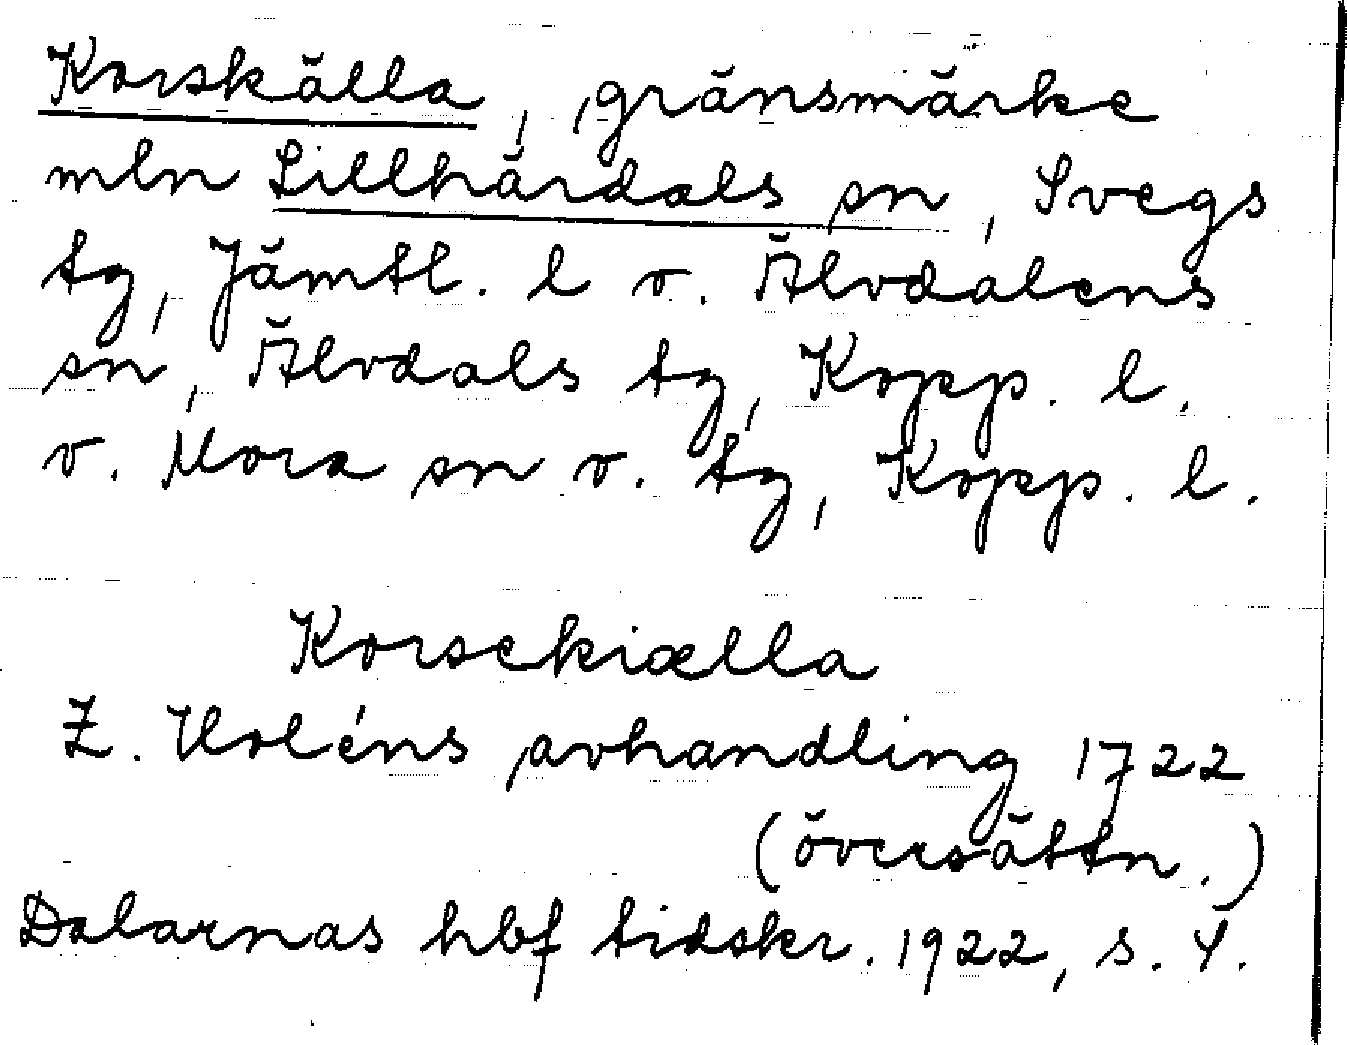 Korskälla, gränsmärke
mln Lillhärdals sn, Svegs
tg, Jämtl. l o. Älvdalens
sn, Älvdals tg, Kopp. l.
o. Mora sn o. tg, Kopp. l.
Korsekiælla
Z. Holéns avhandling 1722
(översättn.)
Dalarnas hbf tidskr. 1922, s. 4.